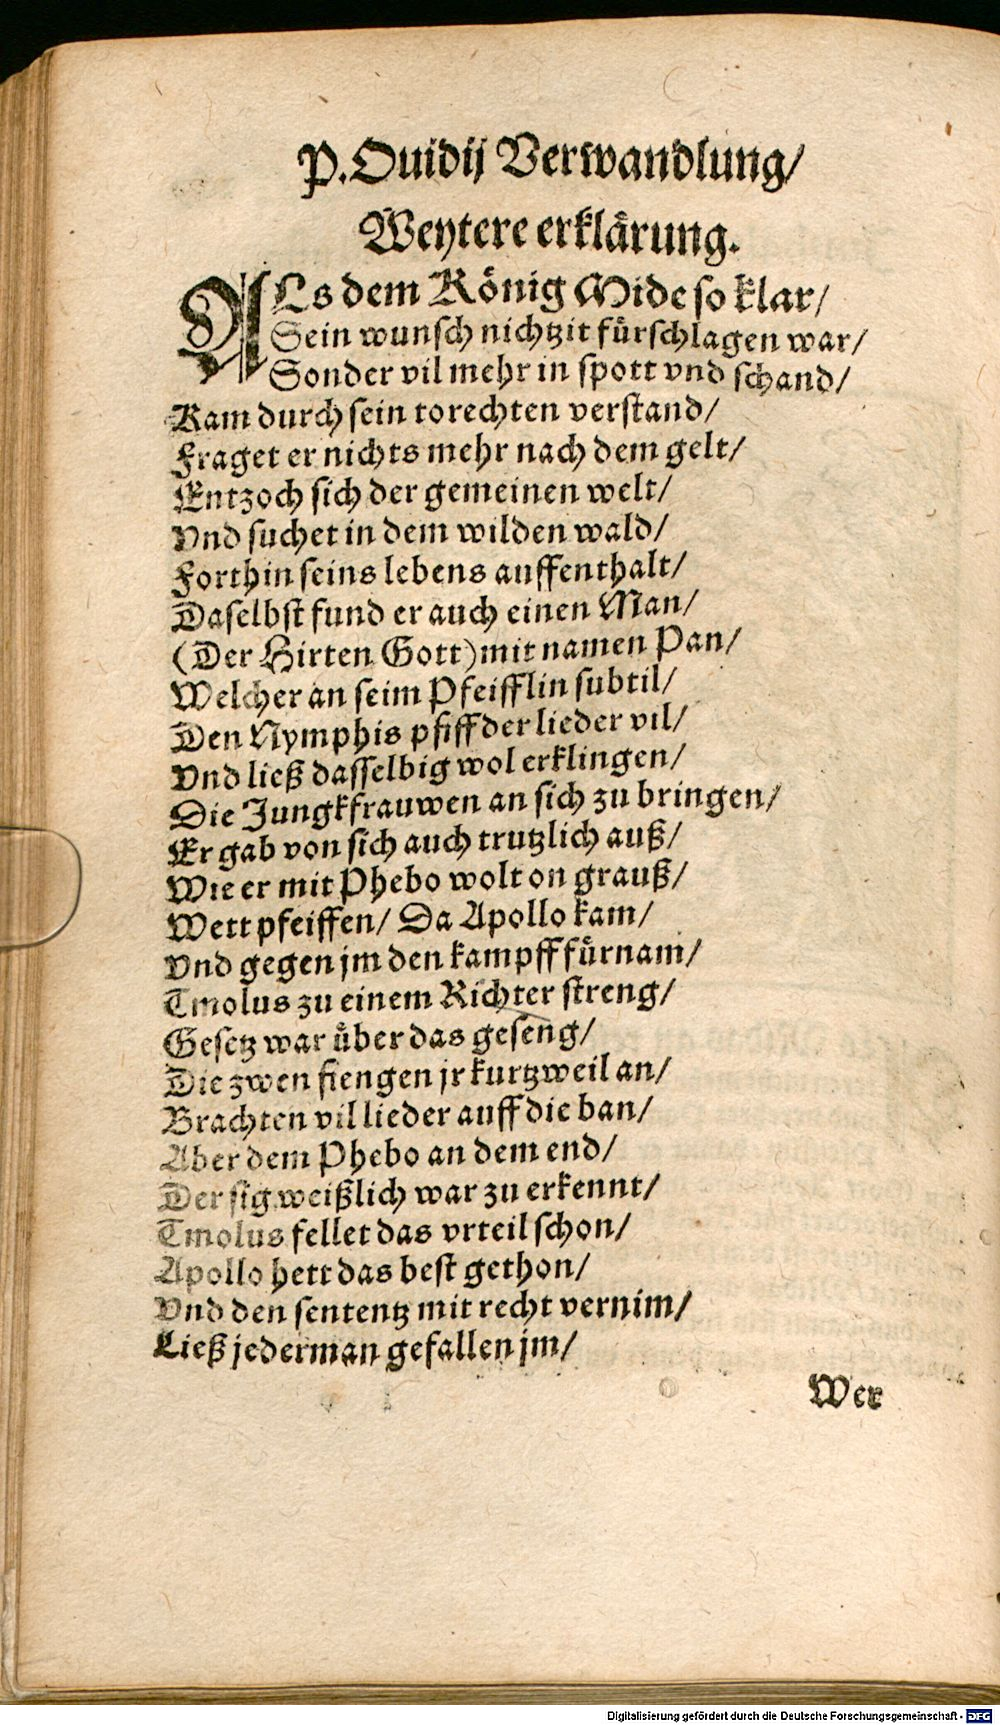 P. Ouidij Verwandlung/
Weytere erklärung.
ALs dem König Mide so klar/
Sein wunsch nichtzit fürschlagen war/
Sonder vil mehr in spott vnd schand/
Kam durch sein torechten verstand/
Fraget er nichts mehr nach dem gelt/
Entzoch sich der gemeinen welt/
Vnd suchet in dem wilden wald/
Forthin seins lebens auffenthalt/
Daselbst fund er auch einen Man/
(Der Hirten Gott) mit namen Pan/
Welcher an seim Pfeifflin subtil/
Den Nymphis pfiff der lieder vil/
Vnd ließ dasselbig wol erklingen/
Die Jungkfrauwen an sich zu bringen/
Er gab von sich auch trutzlich auß/
Wie er mit Phebo wolt on grauß/
Wett pfeiffen/ Da Apollo kam/
Vnd gegen jm den kampff fürnam/
Tmolus zu einem Richter streng/
Gesetz war über das geseng/
Die zwen fiengen jr kurtzweil an/
Brachten vil lieder auff die ban/
Aber dem Phebo an dem end/
Der sig weißlich war zu erkennt/
Tmolus fellet das vrteil schon/
Apollo hett das best gethon/
Vnd den sententz mit recht vernim/
Ließ jederman gefallen jm/
Wer
Digitalisierung gefördert durch die Deutsche Forschungsgemeinschaft - DFG